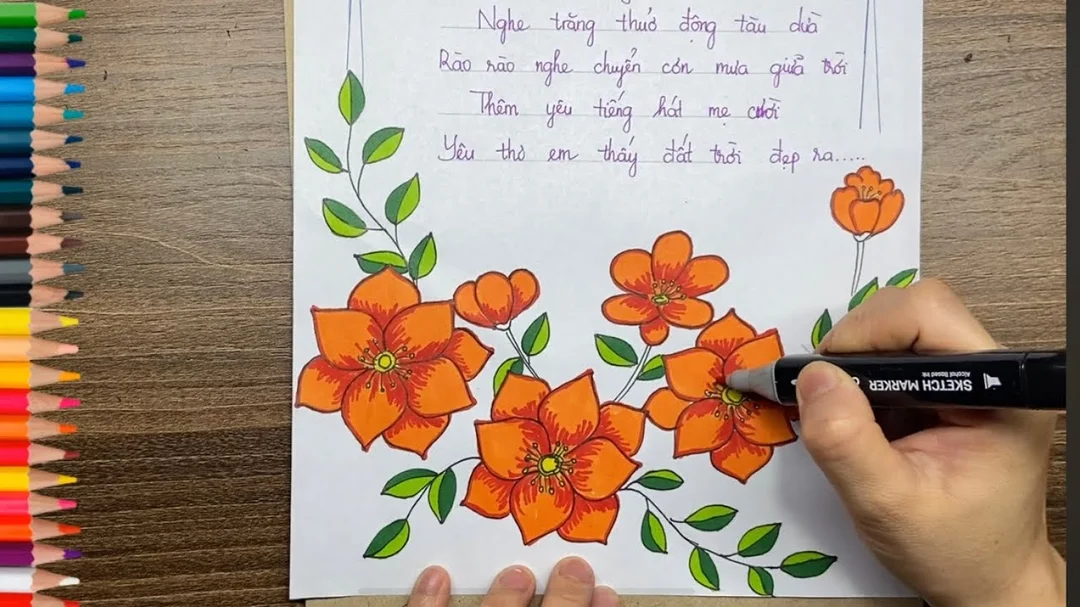 Nghe trăng thuở động tàu dừa
Rào rào nghe chuyển cơn mưa giữa trời
Thêm yêu tiếng hát mẹ cười
Yêu thơ em thấy đất trời đẹp ra.....
SKETCH MARKER
Alcohol Based Ink